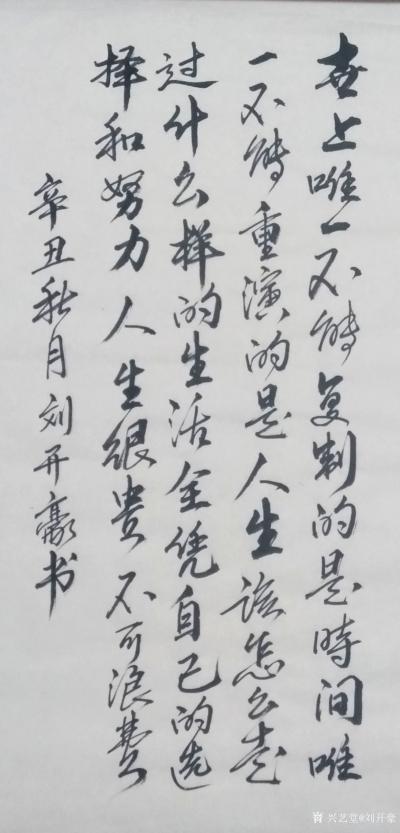 世上唯一不能复制的是时间唯
一不能重演的是人生该怎么走
过什么样的生活全凭自己的选
择和努力人生很贵不可浪费
辛丑秋月刘开豪书
兴艺堂@刘开豪